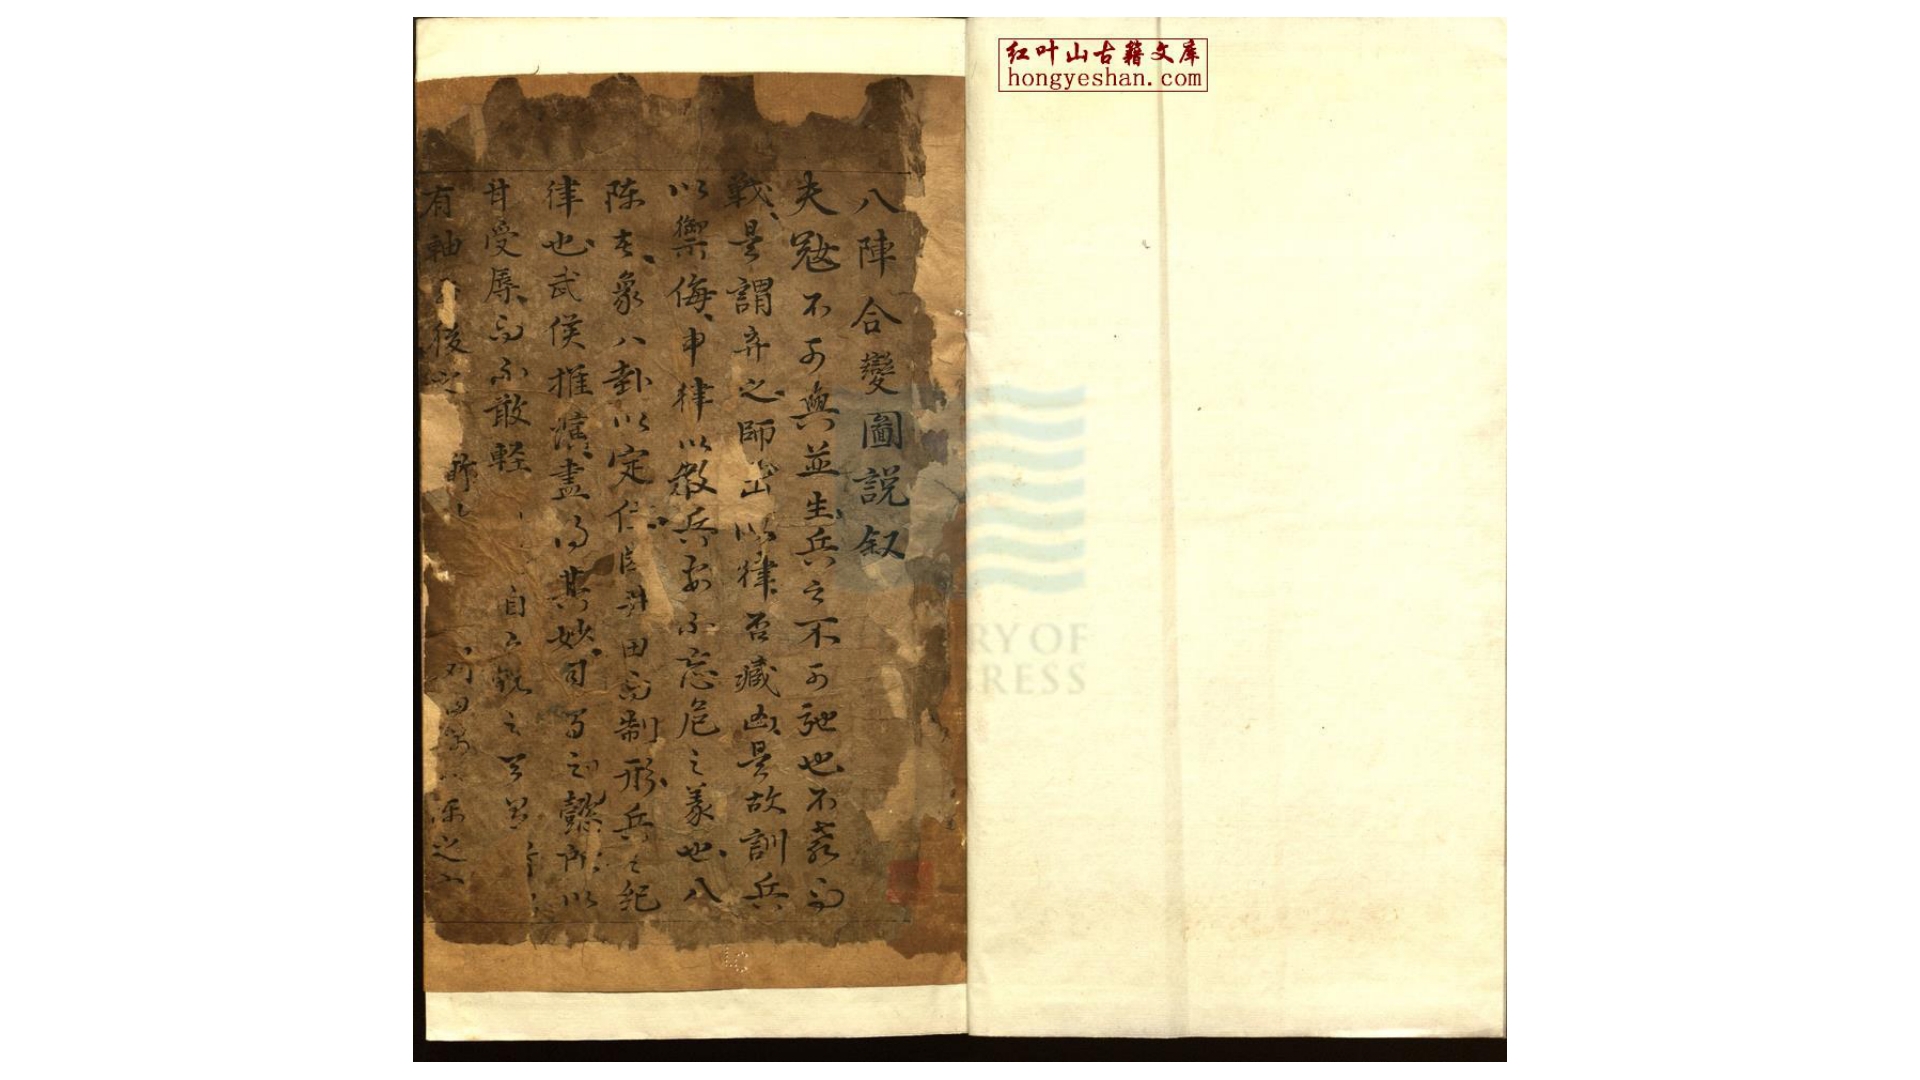 八陣合變圖說叙
夫寇不可與並生兵之不可弛也不教而
戰是謂弃之師出以律否臧凶是故訓兵
以禦侮申律以教兵安不忘危之義也八
陳者象八卦以定位因井田而制形兵之紀
律也武侯推演盡得其妙司馬懿所以
甘受辱而不敢輕 自
有 後 之
红叶山古籍文库
hongyeshan.com
RY OF
RESS